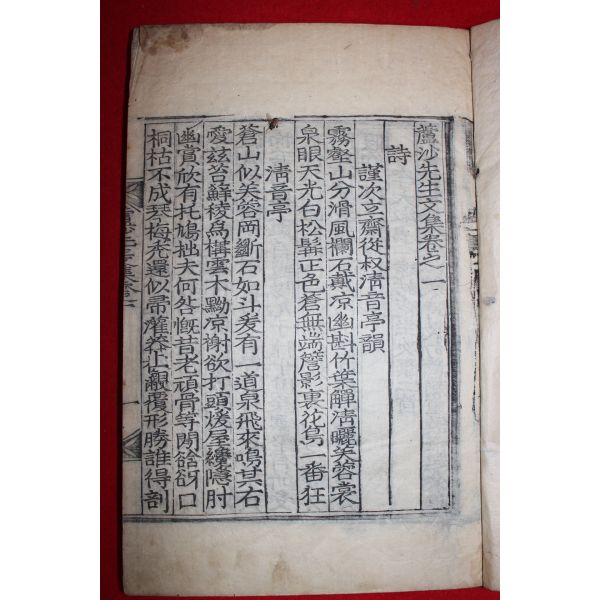 蘆沙先生文集卷之一
詩
謹次立齋從叔淸音亭韻
霧壑山分滑風欄石戴凉幽斟竹葉觶淸曬芙蓉裳
泉眼天光白松髥正色蒼無端簷影裏花鳥一番狂
淸音亭
蒼山似芙蓉岡斷石如斗爰有一道泉飛來鳴其右
愛玆苔蘚稜爲構雲木黝凉榭欲打頭煖屋纔隱肘
幽賞欣有托鳩拙夫何咎慨昔老頑骨等閒谽谺口
桐枯不成琴梅老還似帚灌莽上翳覆形勝誰得剖